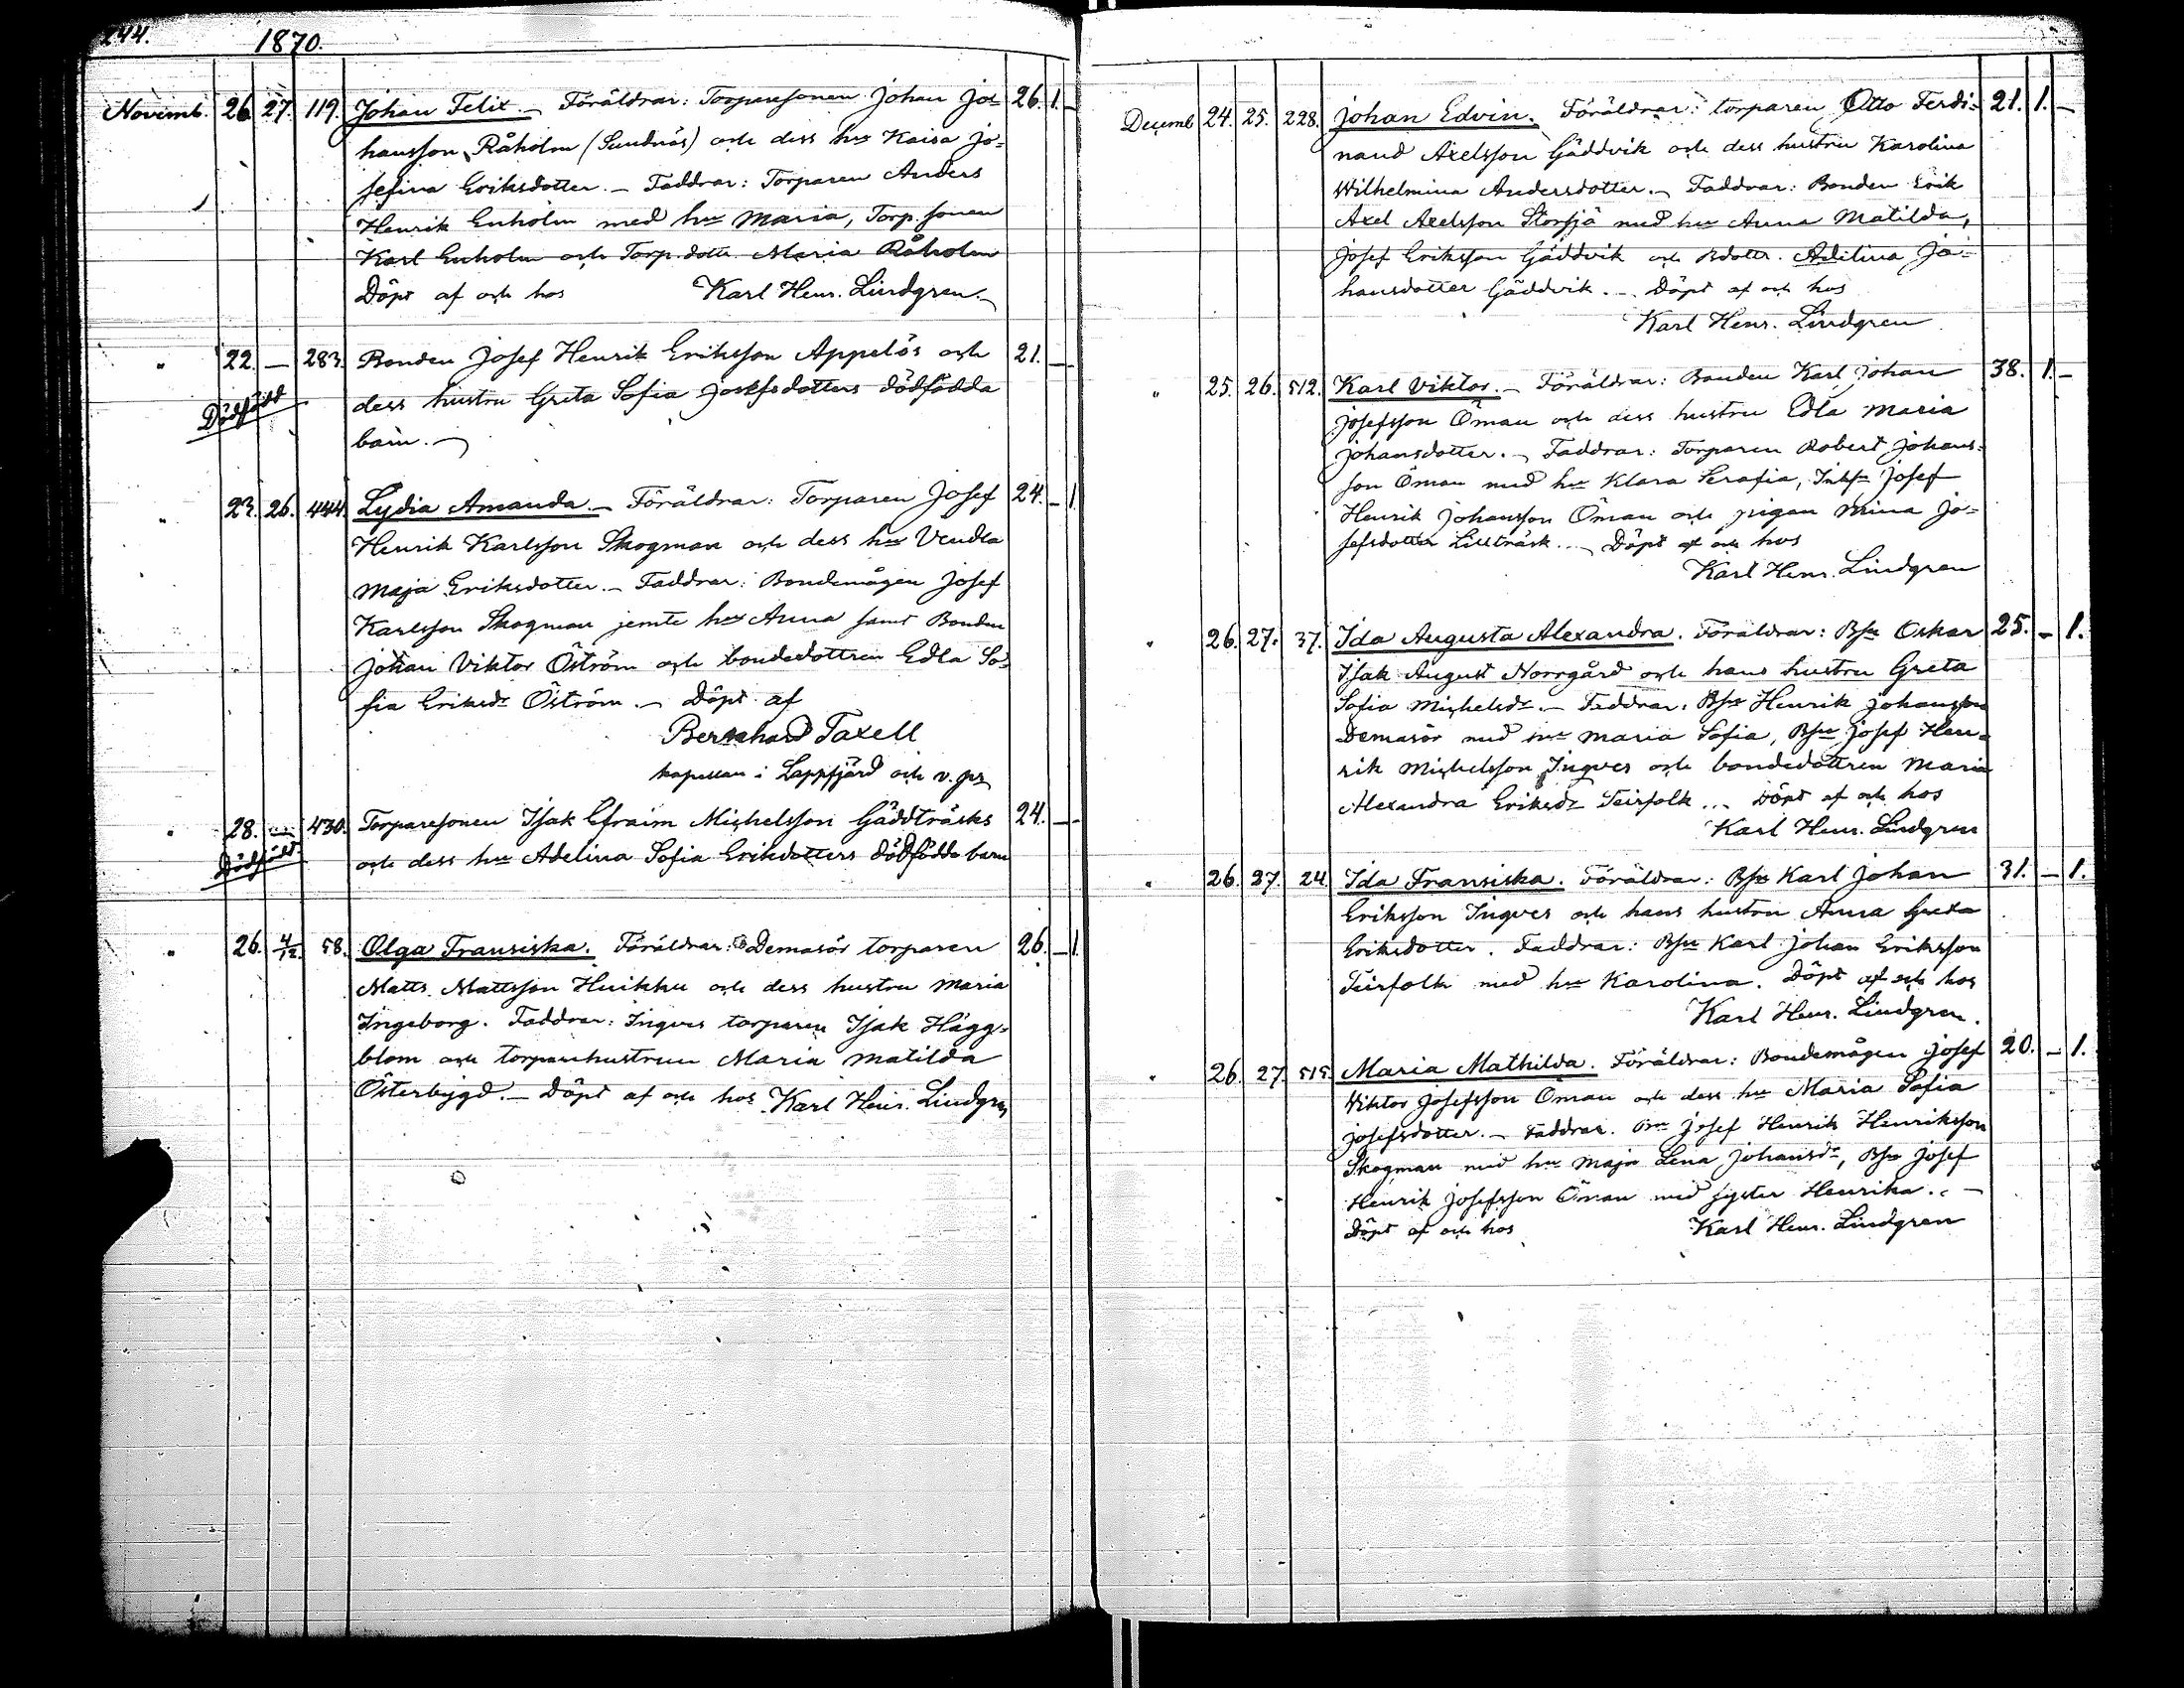 244.
1870.
Novemb. 26. 27. 119. Johan Felix. – Föräldrar: Torparesonen Johan Jo- 26. 1. –
hansson Råholm (Sundnäs) och dess hu Kaisa Jo-
sefina Eriksdotter. – Faddrar: Torparen Anders
Henrik Enholm med hu Maria, Torp.sonen
Karl Enholm och Torp.dottr Maria Råholm
Döpt af och hos Karl Henr. Lindgren. –
" 22. – 283. Bonden Josef Henrik Eriksson Appelös och 21. –
Dödfödt
dess hustru Greta Sofia Josefsdotters dödfödda
barn. –
" 23. 26. 444. Lydia Amanda. – Föräldrar: Torparen Josef 24. – 1
Henrik Karlsson Skogman och dess hu Vendla
Maja Eriksdotter. – Faddrar: Bondemågen Josef
Karlsson Skogman jemte hu Anna samt Bonden
Johan Viktor Öström och bondedottren Edla So-
fia Eriksdr Öström. – Döpt af
Bernhard Taxell
kapellan i Lappfjärd och v. pr
" 28. – 430. Torparesonen Isak Efraim Michelsson Gäddträsks 24. –
Dödfödt.
och dess hu Adelina Sofia Eriksdotters dödfödda barn
" 26. 4/12. 58. Olga Fransiska. Föräldrar: Demasör torparen 26. – 1
Matts Mattsson Huikku och dess hustru Maria
Ingeborg. Faddrar: Ingves torparen Isak Hägg-
blom och torparehustrun Maria Matilda
Österbygd. – Döpt af och hos Karl Henr. Lindgren
Decemb 24. 25. 228. Johan Edvin. Föräldrar: torparen Otto Ferdi- 21. 1. –
nand Axelsson Gäddvik och dess hustru Karolina
Wilhelmina Andersdotter. – Faddrar: Bonden Erik
Axel Axelsson Storsjö med hu Anna Matilda,
Josef Eriksson Gäddvik och Bdottr. Adelina Jo-
hansdotter Gäddvik. – Döpt af och hos
Karl Henr. Lindgren
" 25. 26. 512. Karl Viktor. – Föräldrar: Bonden Karl Johan 38. 1. –
Josefsson Öman och dess hustru Edla Maria
Johansdotter. – Faddrar: Torparen Robert Johans-
son Öman med hu Klara Serafia, Josef
Henrik Johansson Öman och pigan Mina Jo-
sefsdotter Lillträsk. – Döpt af och hos
Karl Henr. Lindgren
" 26. 27. 37. Ida Augusta Alexandra. Föräldrar: Bsn Oskar 25. – 1.
Isak August Norrgård och hans hustru Greta
Sofia Michelsdr. – Faddrar: Bsn Henrik Johansson
Demasör med hu Maria Sofia, Bsn Josef Hen-
rik Michelsson Ingves och bondedottren Maria
Alexandra Eriksdr Teirfolk. – Döpt af och hos
Karl Henr. Lindgren
" 26. 27. 24. Ida Fransiska. Föräldrar: Bsn Karl Johan 31. – 1.
Eriksson Ingves och hans hustru Anna Greta
Eriksdotter. Faddrar: Bsn Karl Johan Eriksson
Teirfolk med hu Karolina. Döpt af och hos
Karl Henr. Lindgren.
" 26. 27. 515. Maria Mathilda. Föräldrar: Bondemågen Josef 20. – 1.
Viktor Josefsson Öman och dess hu Maria Sofia
Josefsdotter. – Faddrar. Bn Josef Henrik Henriksson
Skogman med hu Maja Lena Johansdr, Bsn Josef
Henrik Josefsson Öman med syster Henrika. –
Döpt af och hos Karl Henr. Lindgren